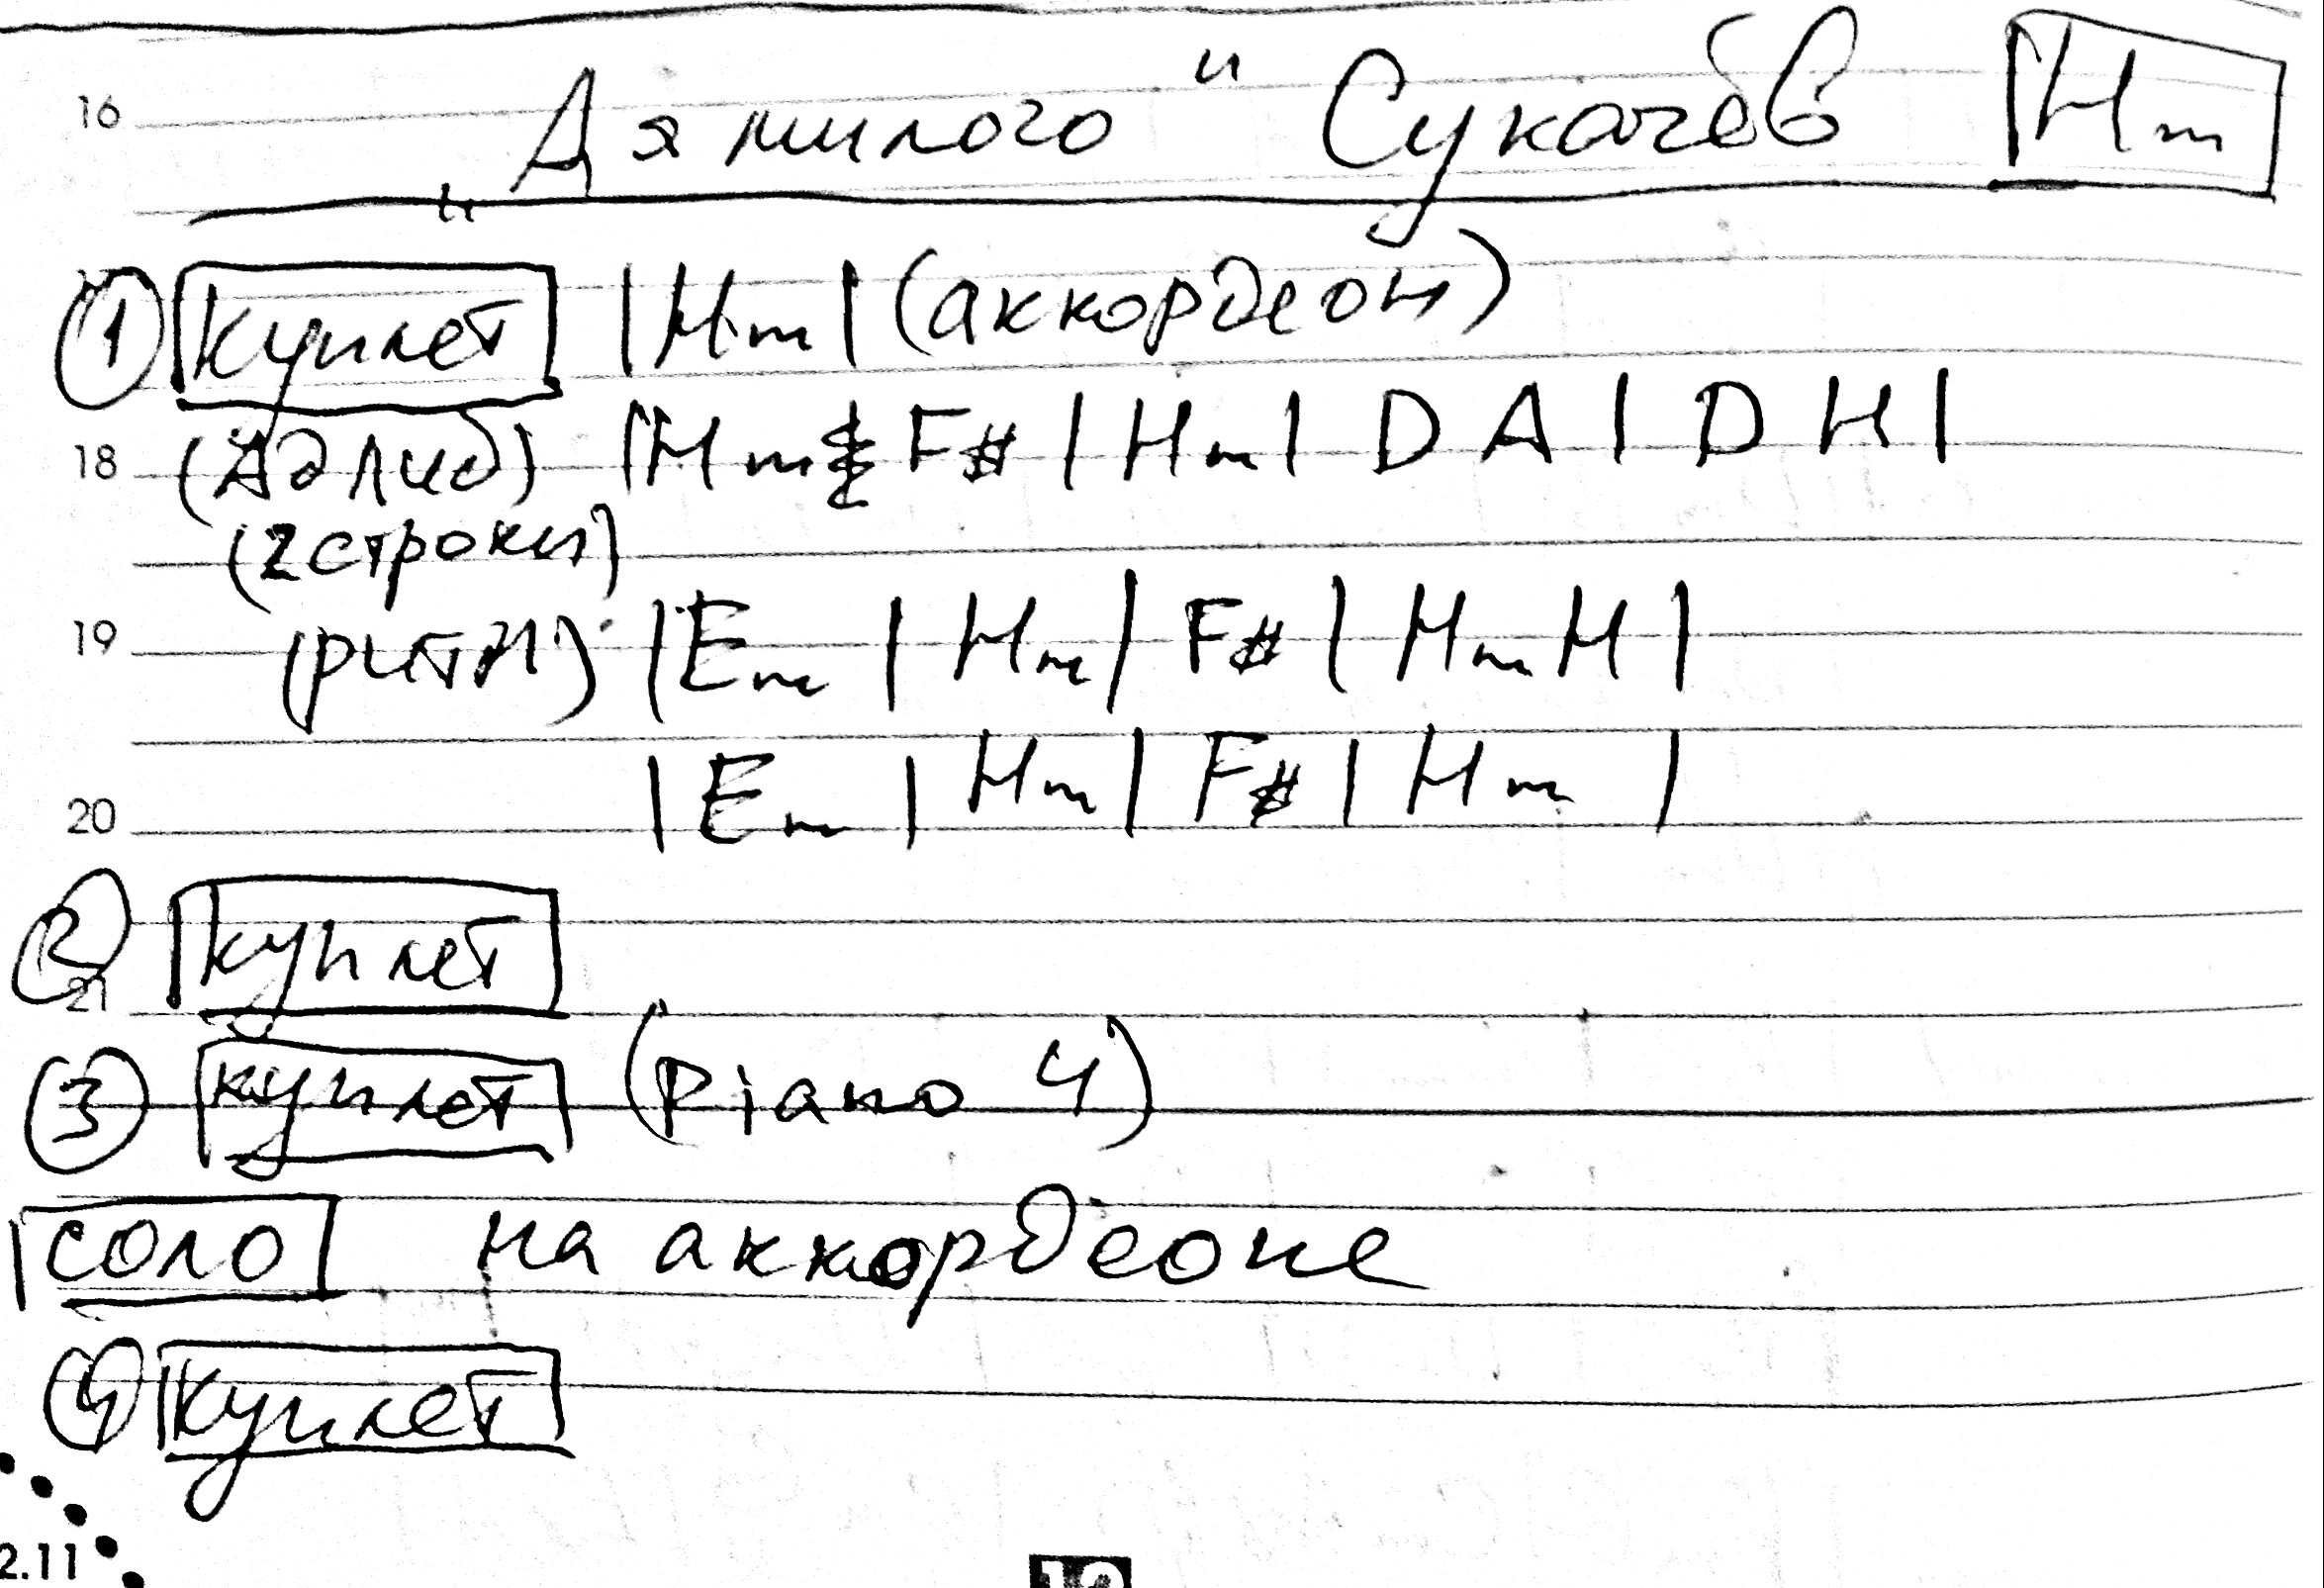 16 „А я милого" Сукачёв Hm
① куплет | Hm | (аккордеон)
18 (Адлиб) | Hm F# | Hm | D A | D H |
(2 строки)
19 (ритм) | Em | Hm | F# | Hm H |
20 | Em | Hm | F# | Hm |
② куплет
21
③ куплет (Piano 4)
соло на аккордеоне
④ куплет
2.11